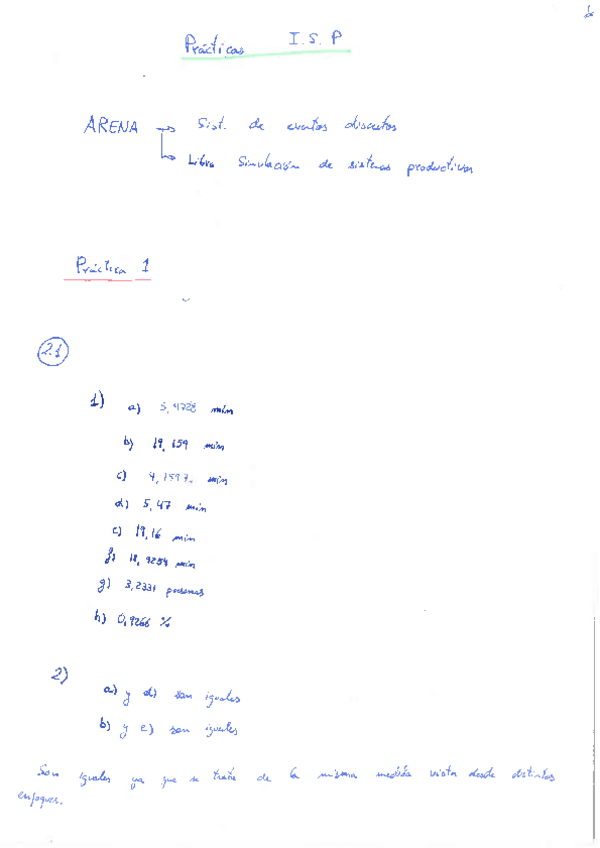 Prácticas I.S.P
ARENA → Sist. de eventos discretos
↳ Libro Simulación de sistemas productivos
Práctica 1
2.1
1) a) 5,4728 min
b) 19,159 min
c) 4,1597 min
d) 5,47 min
e) 19,16 min
f) 18,9254 min
g) 3,2331 personas
h) 0,9266 %
2)
a) y d) son iguales
b) y e) son iguales
Son iguales ya que se trata de la misma medida vista desde distintos
enfoques.